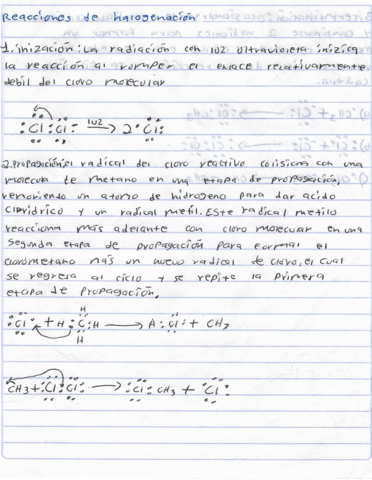 Reacciones de halogenación
1. inización: La radiación con luz ultravioleta inizica
la reacción al romper el enlace relativamente
debil del cloro molecular
:Cl:Cl: luz→ 2·Cl:
2. Propagación: el radical del cloro reactivo colisiona con una
molecula de metano en una etapa de propagación,
removiendo un atomo de hidrogeno para dar acido
cloridrico y un radical metil. Este radical metilo
reacciona más adelante con cloro molecular en una
segunda etapa de propagación para formar el
clorometano más un nuevo radical de cloro, el cual
se regresa al ciclo y se repite la primera
etapa de propagación.
H
:Cl· + H:C:H → A:Cl: + CH3
H
CH3 + :Cl:Cl: → :Cl:CH3 + ·Cl: